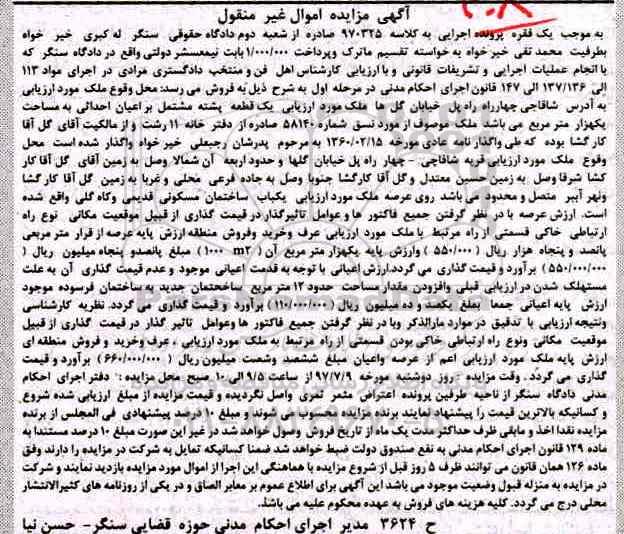 آگهی مزایده اموال غیر منقول
به موجب یک فقره پرونده اجرایی به کلاسه ۹۷۰۳۲۵ صادره از شعبه دوم دادگاه حقوقی سنگر له کبری خیر خواه
بطرفیت محمد تقی خیر خواه به خواسته تقسیم ماترک وپرداخت ۱/۰۰۰/۰۰۰ بابت نیمعسشر دولتی واقع در دادگاه سنگر که
با انجام عملیات اجرایی و تشریفات قانونی و با ارزیابی کارشناس اهل فن و منتخب دادگستری مرادی در اجرای مواد ۱۱۳
الی ۱۳۷/۱۳۶ الی ۱۴۷ قانون اجرای احکام مدنی در مرحله اول به شرح ذیل به فروش می رسد: محل وقوع ملک مورد ارزیابی
به آدرس شاقاجی چهارراه راه پل خیابان گل ها ملک مورد ارزیابی یک قطعه پشته مشتمل بر اعیان احداثی به مساحت
یکهزار متر مربع می باشد ملک موصوف از مورد نسق شماره ۵۸۱۴۰ صادره از دفتر خانه ۱۱ رشت و از مالکیت آقای گل آقا
کار گشا بوده که طی واگذار نامه عادی مورخه ۱۳۶۰/۰۲/۱۵ به مرحوم پدرشان رجبعلی خیر خواه واگذار شده است محل
وقوع ملک مورد ارزیابی قریه شاقاجی - چهار راه پل خیابان گلها و حدود اربعه آن شمالا وصل به زمین آقای گل آقا کار
کشا شرقا وصل به زمین حسین معتدل و گل آقا کارگشا جنوبا وصل به جاده فرعی محلی و غربا به زمین گل آقا کار گشا
ونهر آببر متصل و محدود می باشد روی عرصه ملک مورد ارزیابی یکباب ساختمان مسکونی قدیمی وکاه گلی واقع شده
است. ارزش عرصه با در نظر گرفتن جمیع فاکتور ها و عوامل تاثیرگذار در قیمت گذاری از قبیل موقعیت مکانی نوع راه
ارتباطی خاکی قسمتی از راه مرتبط با ملک مورد ارزیابی عرف وخرید وفروش منطقه ارزش پایه عرصه از قرار متر مربعی
پانصد و پنجاه هزار ریال (۵۵۰/۰۰۰) وارزش پایه یکهزار متر مربع آن (m۲ ۱۰۰۰) مبلغ پانصدو پنجاه میلیون ریال (
۵۵۰/۰۰۰/۰۰۰) برآورد و قیمت گذاری می گردد.ارزش اعیانی با توجه به قدمت اعیانی موجود و عدم قیمت گذاری آن به علت
مستهلک شدن در ارزیابی قبلی وافزودن مقدار مساحت حدود ۱۲ متر مربع ساختمان جدید به ساختمان فرسوده موجود
ارزش پایه اعیانی جمعا بمبلغ یکصد و ده میلیون ریال (۱۱۰/۰۰۰/۰۰۰) برآورد و قیمت گذاری می گردد. نظریه کارشناسی
ونتیجه ارزیابی با تدقیق در موارد مارالذکر وبا در نظر گرفتن جمیع فاکتور ها وعوامل تاثیر گذار در قیمت گذاری از قبیل
موقعیت مکانی ونوع راه ارتباطی خاکی بودن قسمتی از راه مرتبط به ملک مورد ارزیابی ، عرف وخرید و فروش منطقه ای
ارزش پایه ملک مورد ارزیابی اعم از عرصه واعیان مبلغ ششصد وشصت میلیون ریال (۶۶۰/۰۰۰/۰۰۰) برآورد و قیمت
گذاری می گردد. وقت مزایده : روز دوشنبه مورخه ۹۷/۷/۹ از ساعت ۹/۵ الی ۱۰ صبح محل مزایده : دفتر اجرای احکام
مدنی دادگاه سنگر از ناحیه طرفین پرونده اعتراض مثمر ثمری واصل نگردیده و قیمت مزایده از مبلغ ارزیابی شده شروع
و کسانیکه بالاترین قیمت را پیشنهاد نمایند برنده مزایده محسوب می شوند و مبلغ ۱۰ درصد پیشنهادی فی المجلس از برنده
مزایده نقدا اخذ و مابقی ظرف حداکثر مدت یک ماه از تاریخ فروش وصول خواهد شد در غیر این صورت مبلغ ۱۰ درصد مستندا به
ماده ۱۲۹ قانون اجرای احکام مدنی به نفع صندوق دولت ضبط خواهد شد ضمنا کسانیکه تمایل به شرکت در مزایده را دارند وفق
ماده ۱۲۶ همان قانون می توانند ظرف ۵ روز قبل از شروع مزایده با هماهنگی این اجرا از اموال مورد مزایده بازدید نمایند و شرکت
در مزایده به منزله قبول وضعیت موجود می باشد این آگهی برای اطلاع عموم بر معابر الصاق و در یکی از روزنامه های کثیرالانتشار
محلی درج می گردد. کلیه هزینه های فروش به عهده محکوم علیه می باشد.
ح ۳۶۲۴ مدیر اجرای احکام مدنی حوزه قضایی سنگر- حسن نیا